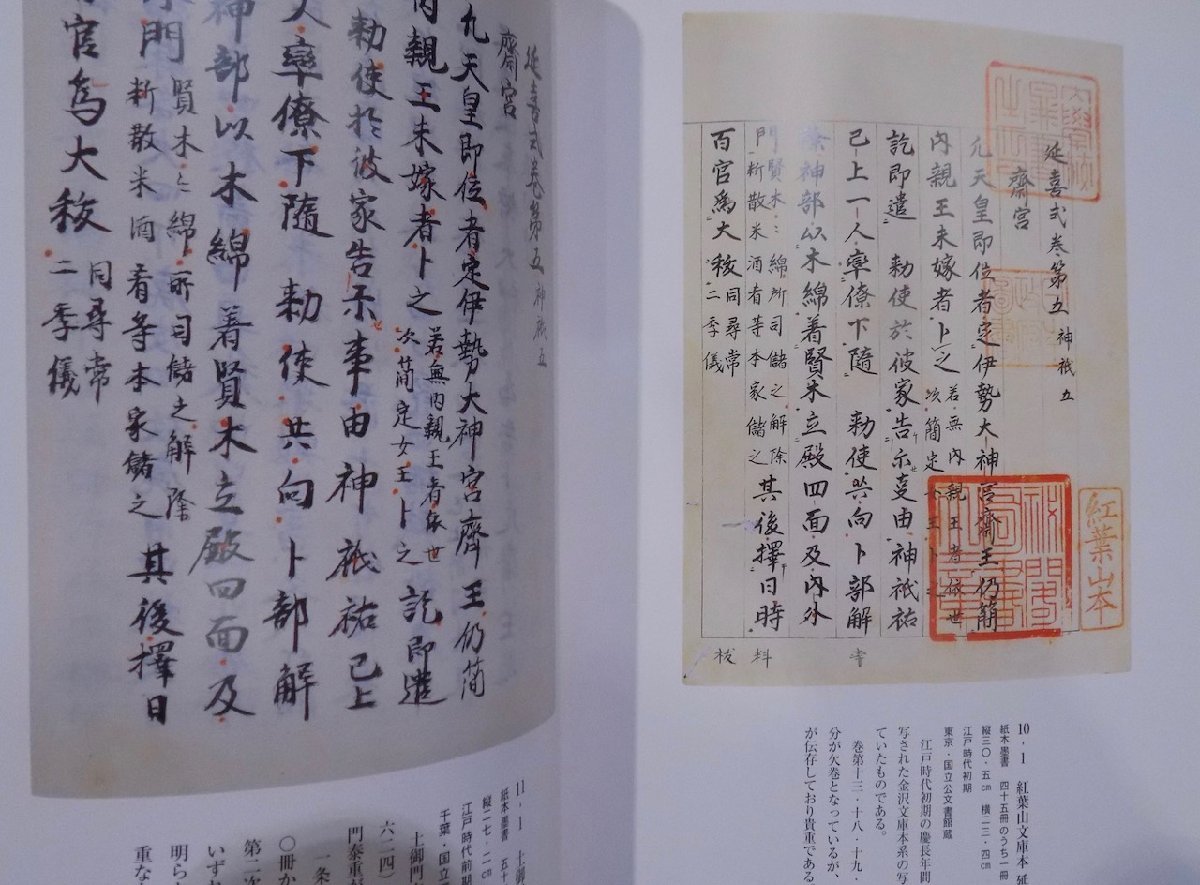 紅葉山本
秘閣圖書之章
延喜式卷第五 神祇五
齋宮
凢天皇即位者定伊勢大神宮齋王仍簡
內親王未嫁者卜之 若無內親王者依世
次簡定女王卜之
訖即遣 勅使於彼家告示事由神祇祐
已上一人率僚下隨 勅使共向卜部解
祭神部以木綿着賢木立殿四面及內外
門 賢木々綿所司儲之解除
新散米酒肴等本家儲之 其後擇日時
百官爲大秡 同尋常
二季儀
料
秡
10・1 紅葉山文庫本 延
紙本墨書 四十五冊のうち一冊
縦三〇・五㎝ 横二三・四㎝
江戸時代初期
東京・国立公文書館蔵
江戸時代初期の慶長年間
写された金沢文庫本系の写
ていたものである。
巻第十三・十八・十九・
分が欠巻となっているが、
が伝存しており貴重である
延喜式卷第五 神祇五
齋宮
凢天皇即位者定伊勢大神宮齊王仍簡
内親王未嫁者卜之 若無内親王者依世
次簡定女王卜之 訖即遣
勅使於彼家告示事由神祇祐已上
人率僚下隨 勅使共向卜部解
神部以木綿着賢木立殿四面及
門 賢木々綿所司儲之解除
新散米酒肴等本家儲之 其後擇日
官爲大秡 同尋常
二季儀
11・1 土御
紙本墨書 五十
縦二七・二㎝
江戸時代前期
千葉・国立
土御門
六二四)
門泰重が
一条
〇冊か
第二次
いずれ
明らか
重な